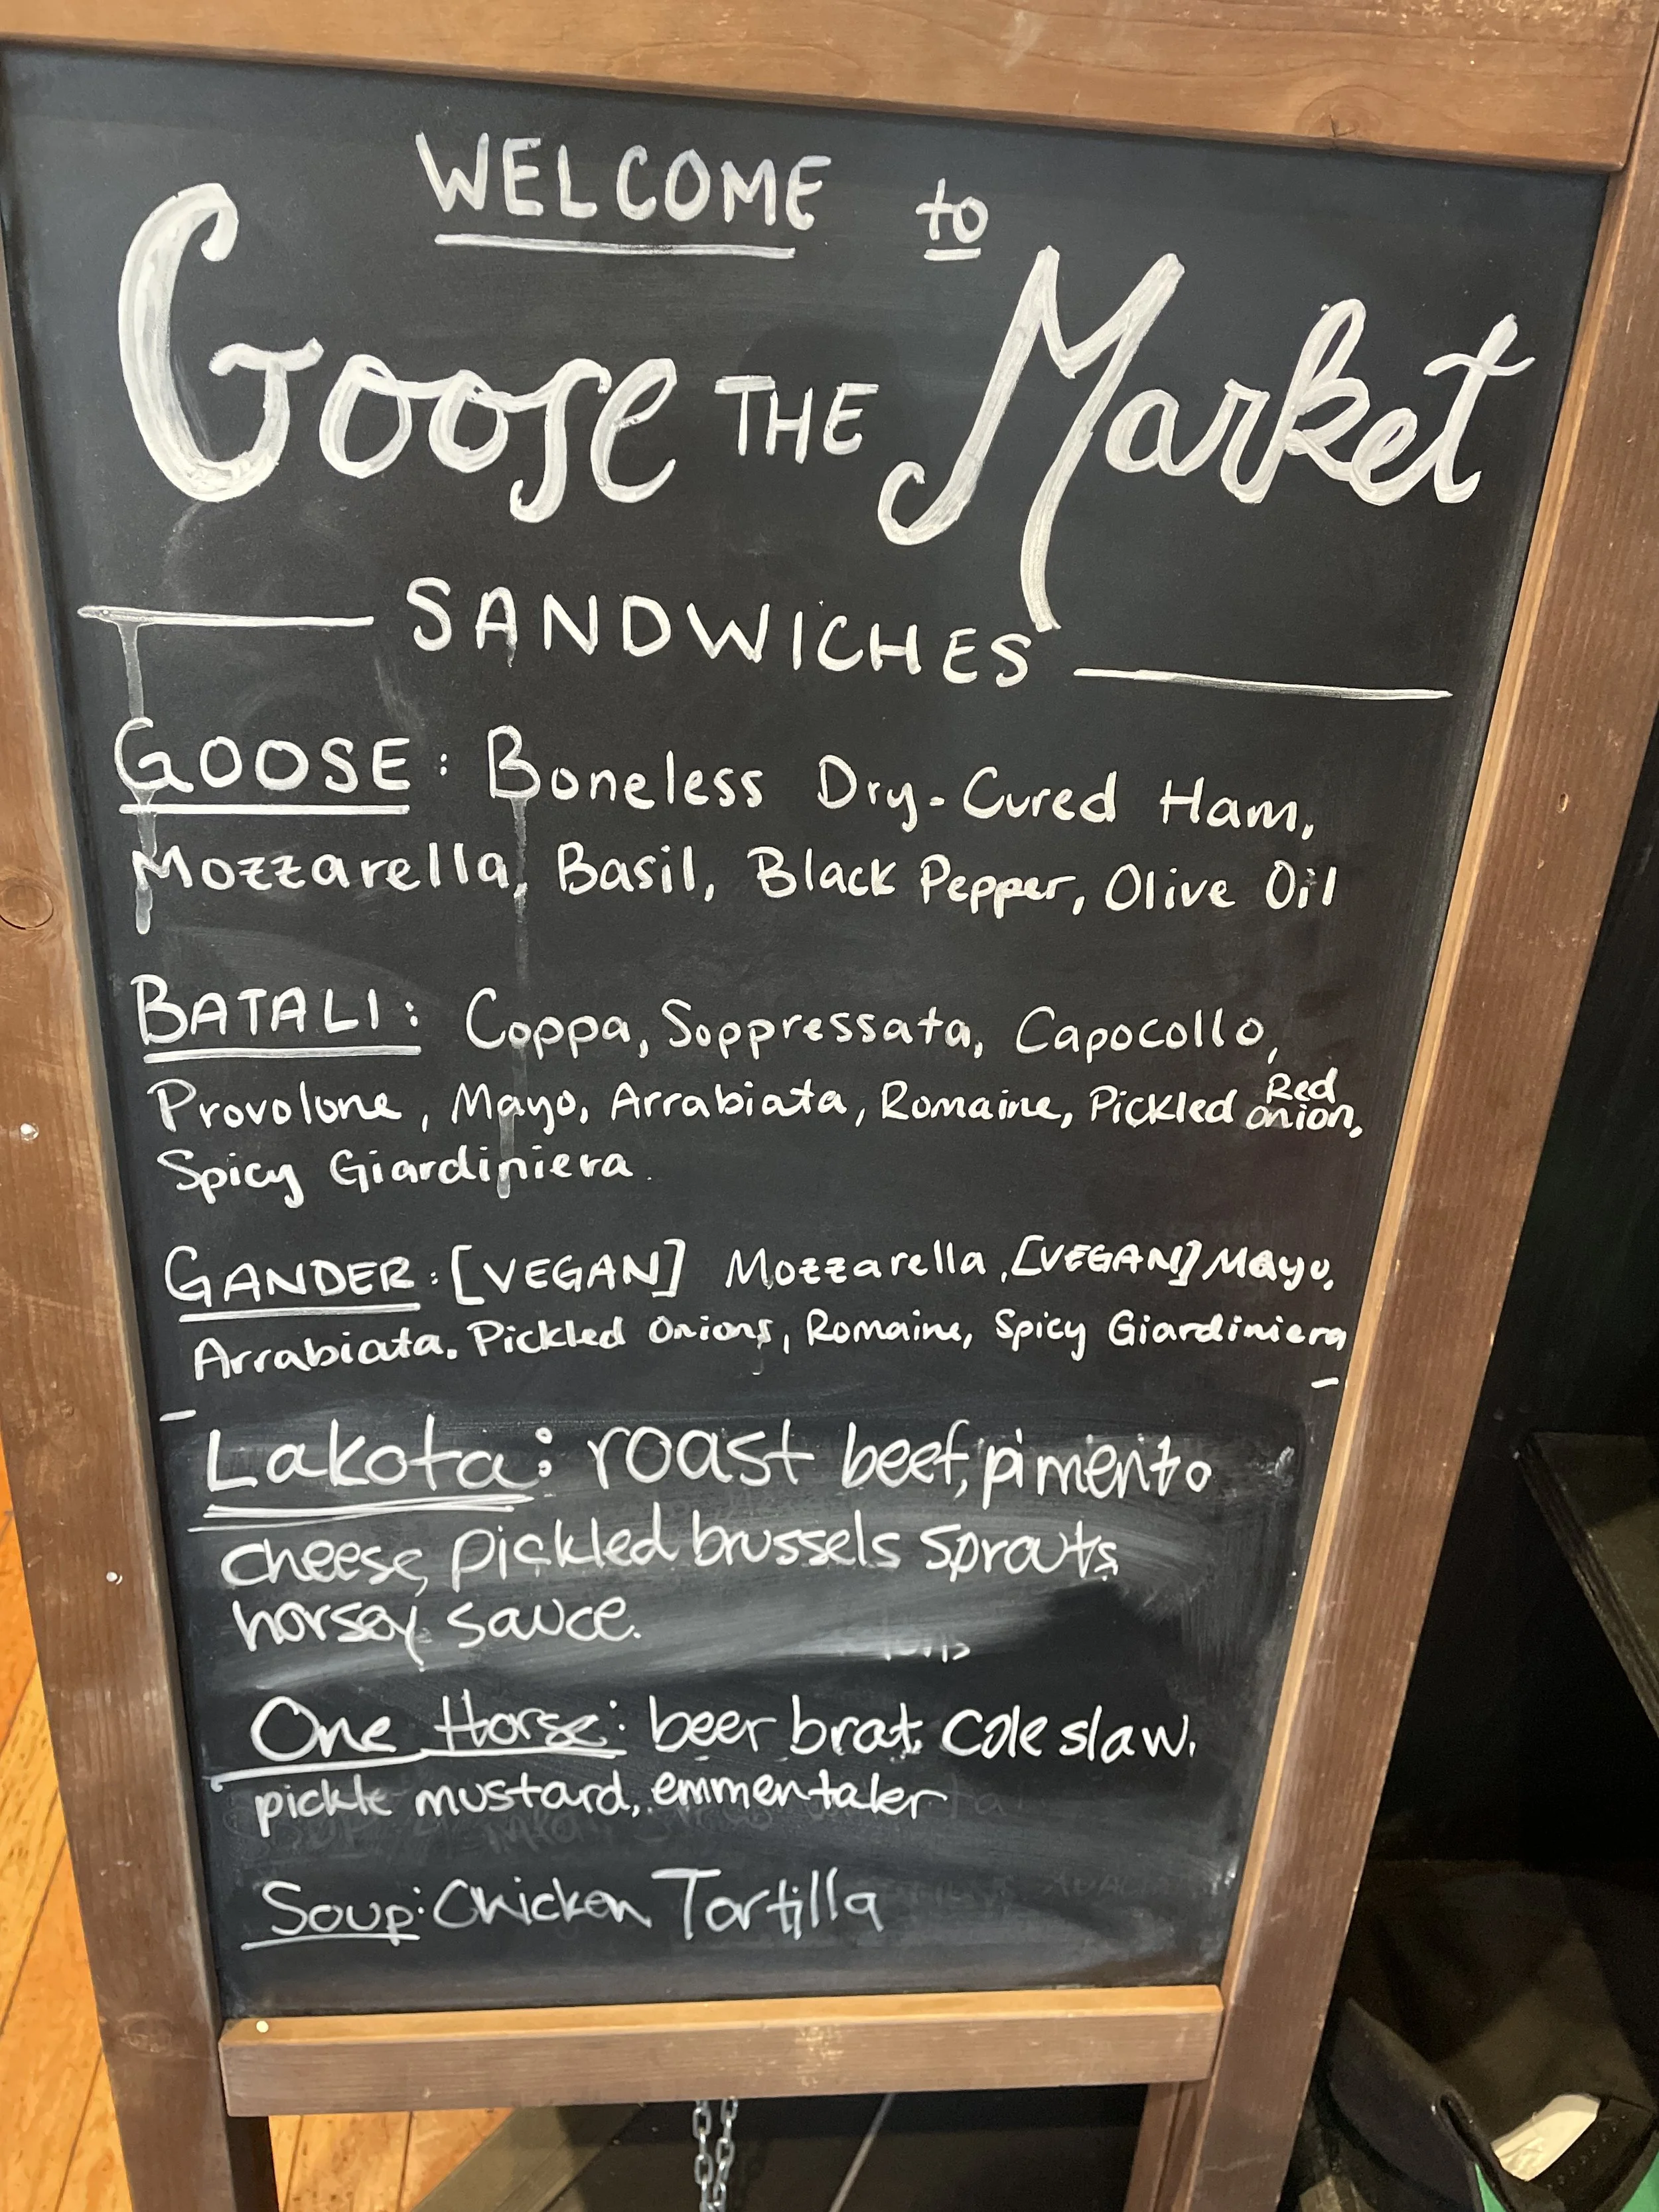 WELCOME to
Goose THE Market
SANDWICHES
GOOSE: Boneless Dry-Cured Ham,
Mozzarella, Basil, Black Pepper, Olive Oil
BATALI: Coppa, Soppressata, Capocollo,
Provolone, Mayo, Arrabiata, Romaine, Pickled Red onion,
Spicy Giardiniera
GANDER: [VEGAN] Mozzarella, [VEGAN] Mayo,
Arrabiata. Pickled Onions, Romaine, Spicy Giardiniera
Lakota: roast beef, pimento
cheese, pickled brussels sprouts
horsey sauce.
One Horse: beer brat, Cole slaw,
pickle mustard, emmentaler
Soup: Chicken Tortilla